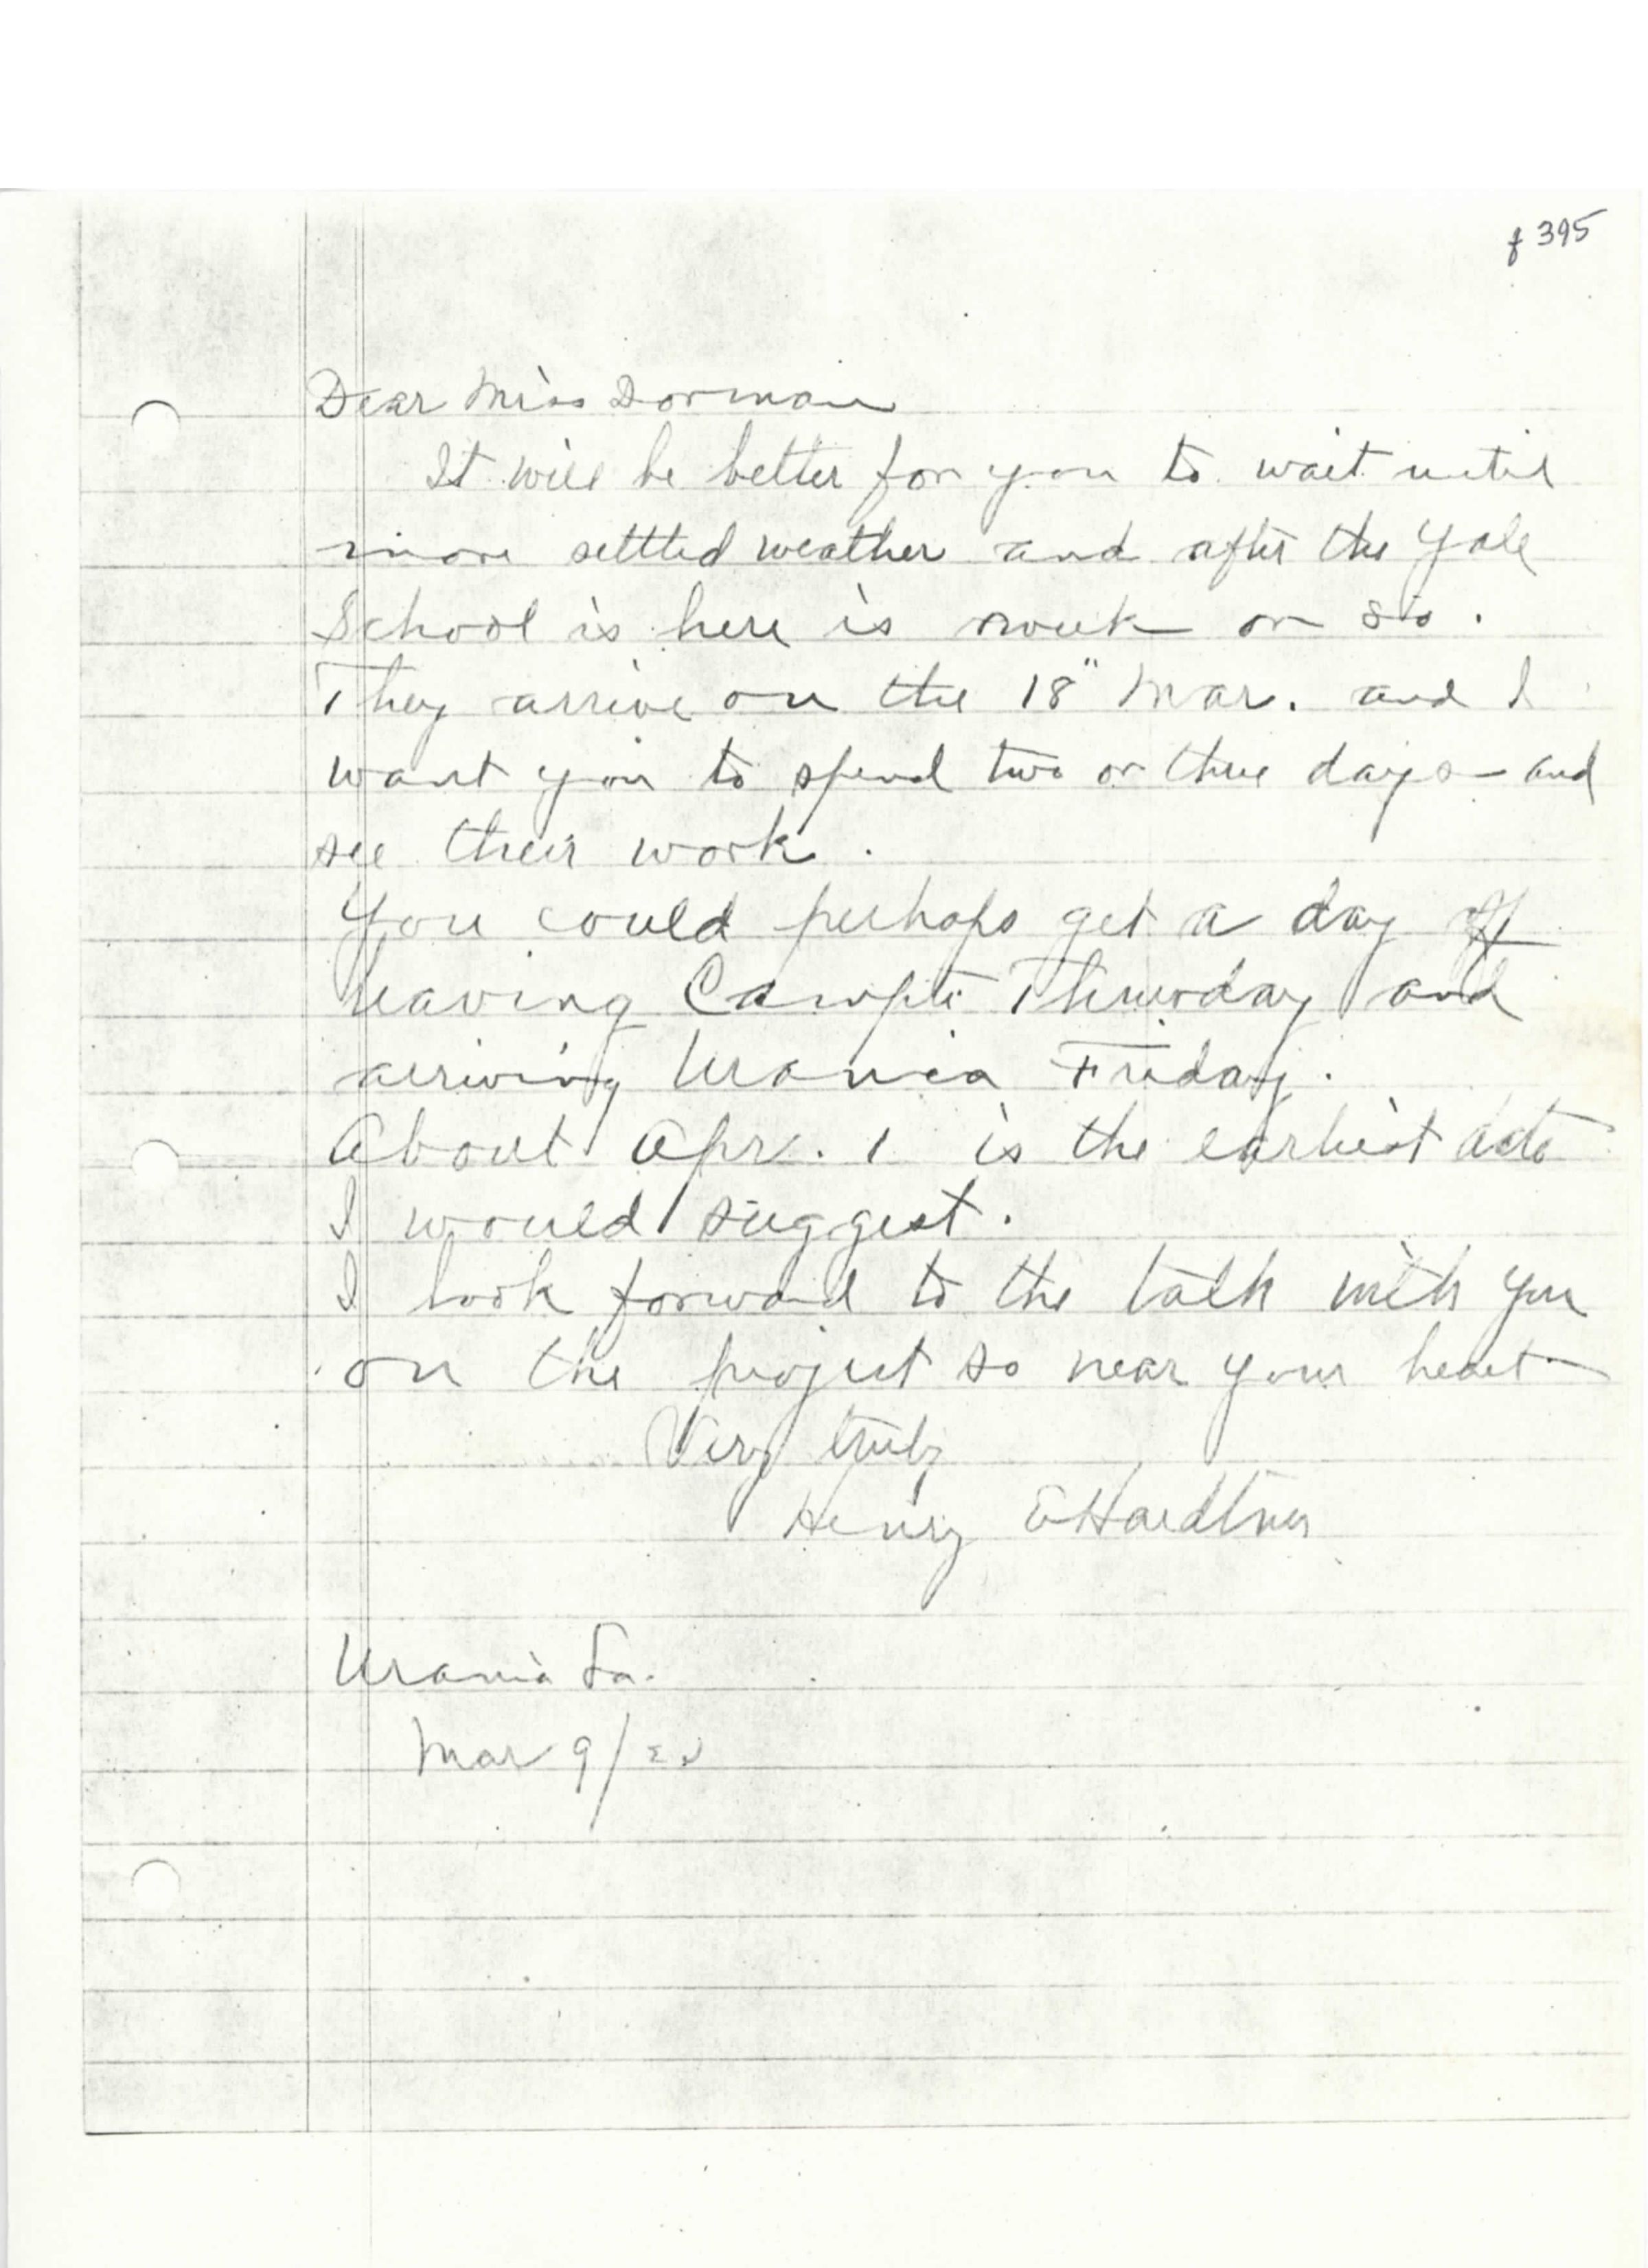 f 395
Dear Miss Dorman
It will be better for you to wait until
more settled weather and after the Yale
School is here is week or so.
They arrive on the 18" Mar. and I
want you to spend two or three days - and
see their work.
You could perhaps get a day off
leaving Campti Thursday and
arriving Urania Friday.
About Apr. 1 is the earliest date
I would suggest.
I look forward to the talk with you
on the project so near your heart
Very truly
Henry E Hardtner
Urania La.
Mar 9/22